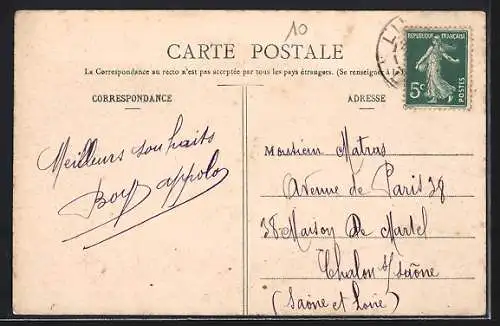 10
CARTE POSTALE
La Correspondance au recto n'est pas acceptée par tous les pays étrangers. (Se renseigner à la
REPUBLIQUE FRANÇAISE
5c
POSTES
CORRESPONDANCE
ADRESSE
Meilleurs souhaits
Monsieur Matras
Avenue de Paris 38
38 Maison De Martel
Chalon s/ saône
(Saône et Loire)